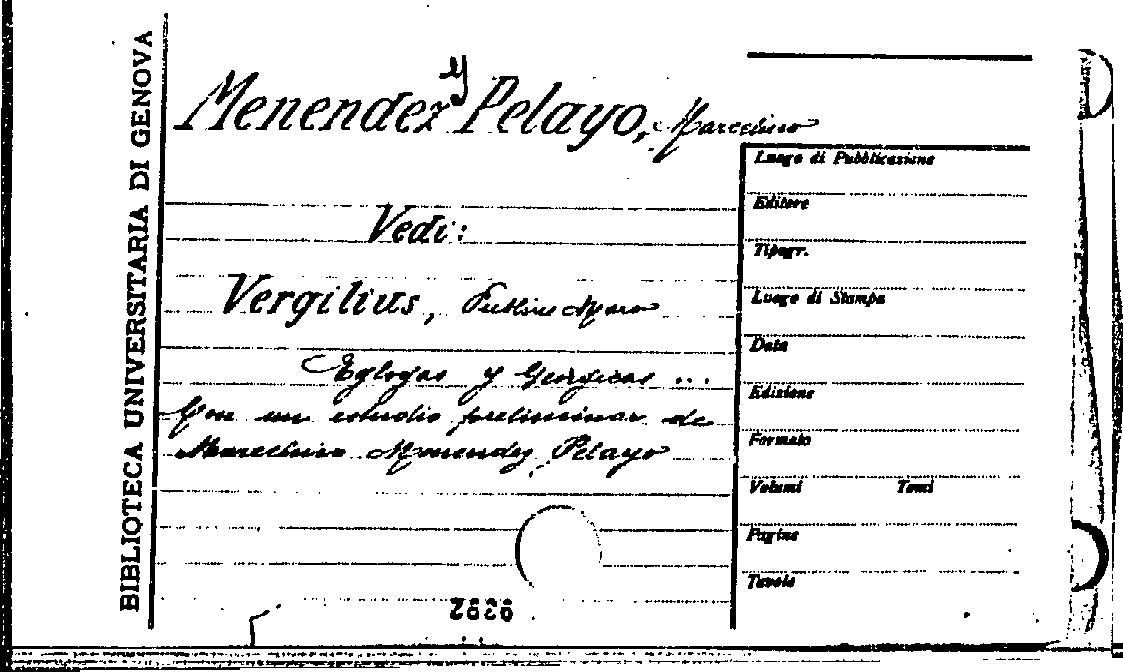 BIBLIOTECA UNIVERSITARIA DI GENOVA
Menendez y Pelayo, Marcelino
Vedi:
Vergilius, Publius Maro
Eglogas y Geórgicas ...
Con un estudio preliminar de
Marcelino Menendez Pelayo
Luogo di Pubblicazione
Editore
Tipogr.
Luogo di Stampa
Data
Edizione
Formato
Volumi Tomi
Pagine
Tavole